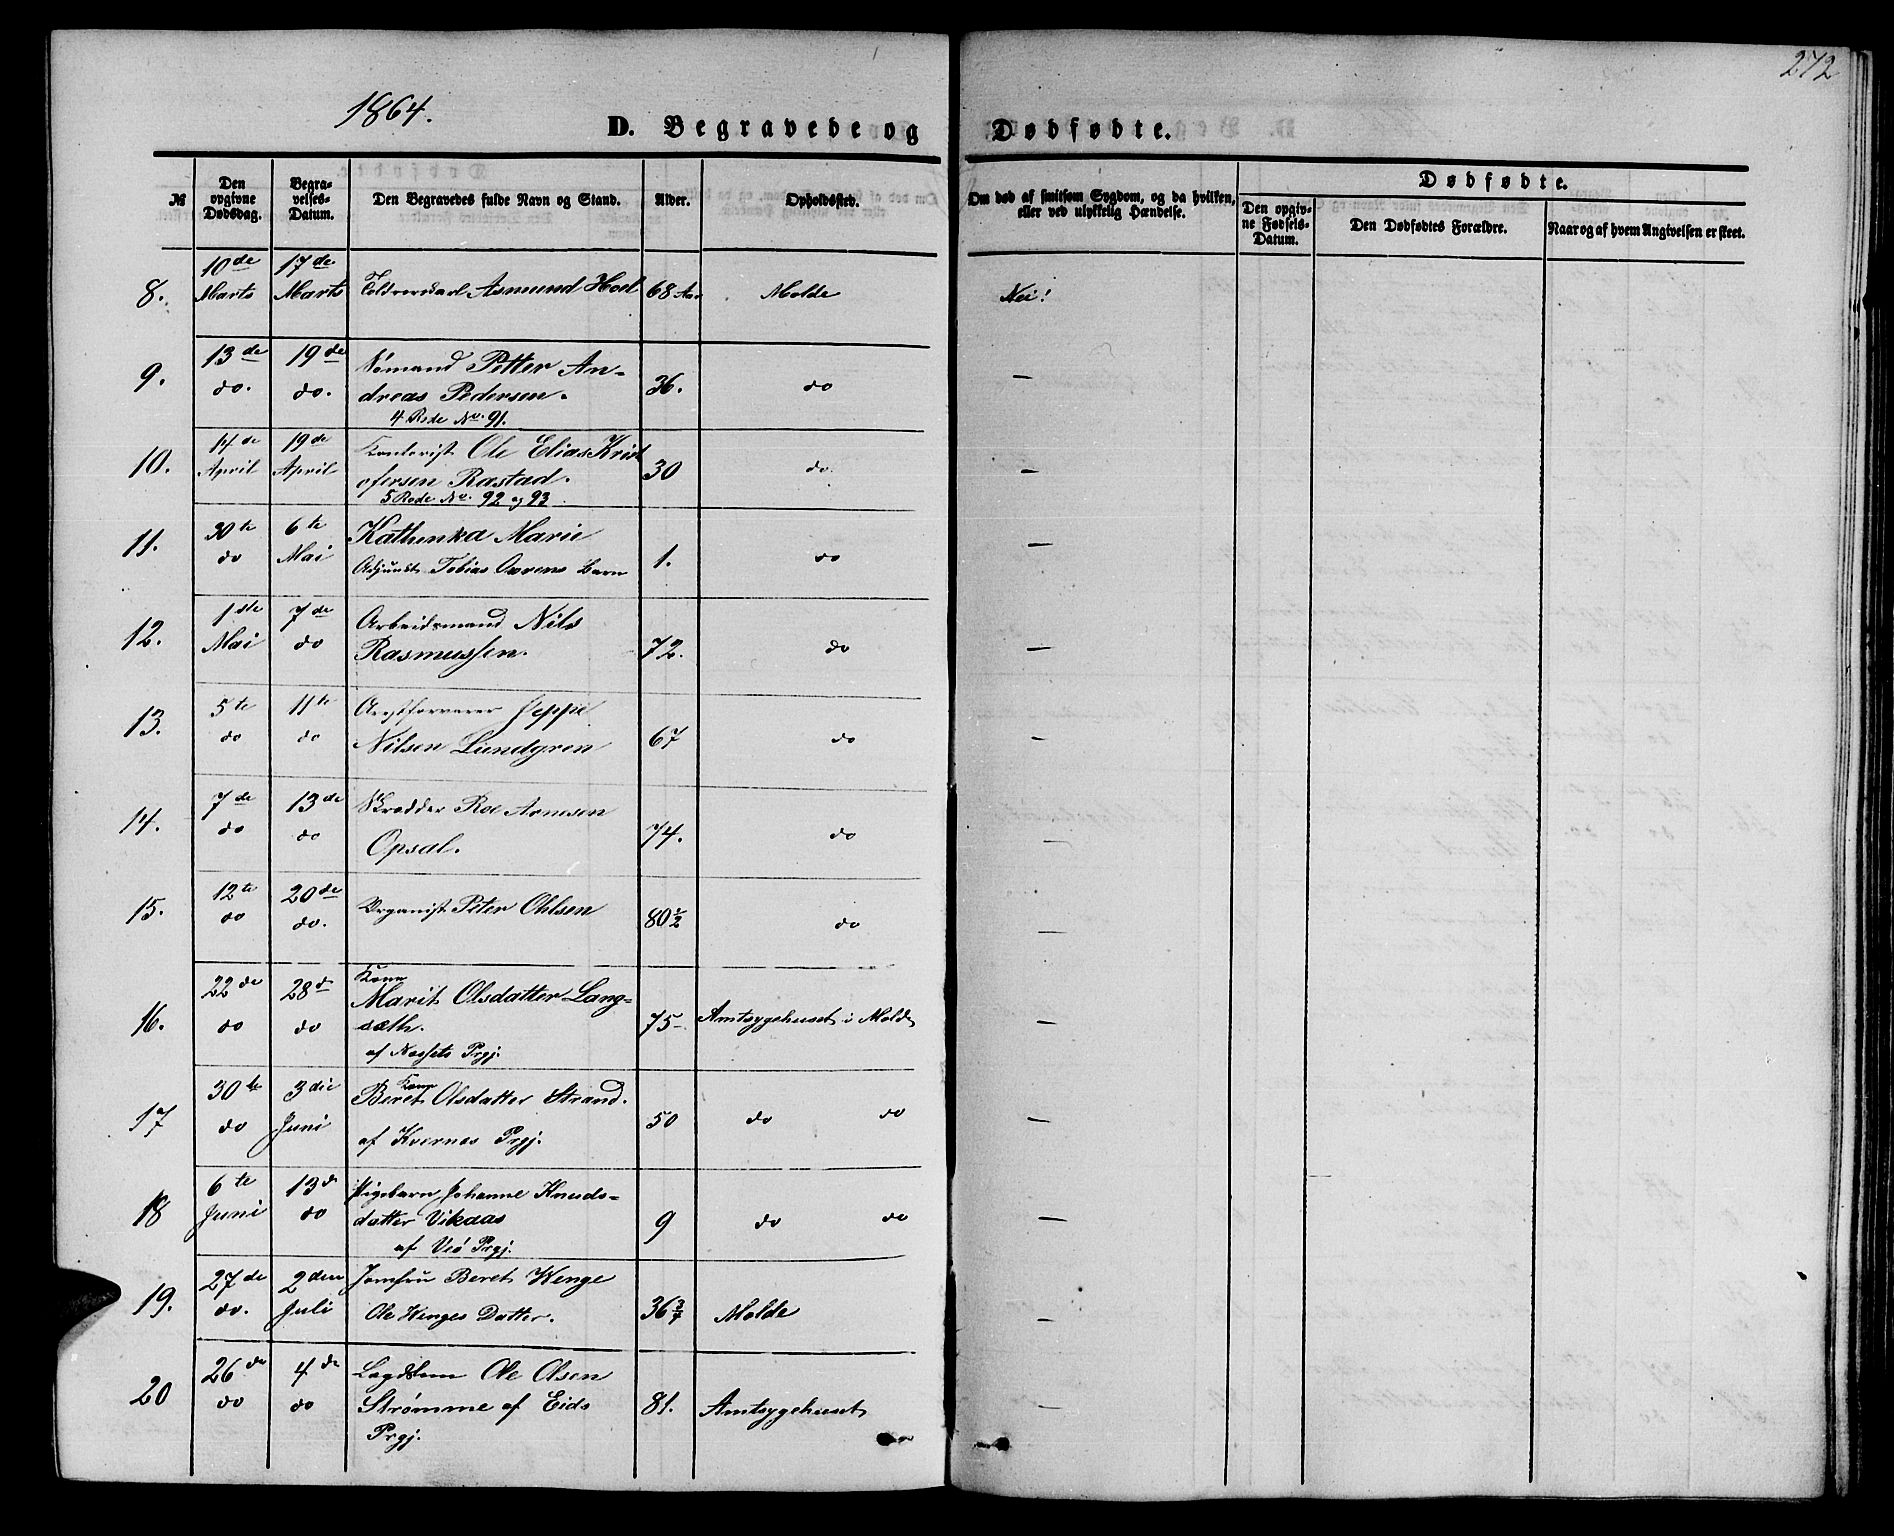 272
1864.
D. Begravede og Dødfødte.
№
Den opgivne Dødsdag.
Begravelses-Datum.
Den Begravedes fulde Navn og Stand.
Alder.
Opholdssted.
Om død af smitsom Sygdom, og da hvilken, eller ved ulykkelig Hændelse.
Dødfødte.
Den opgivne Fødsels-Datum.
Den Dødfødtes Forældre.
Naar og af hvem Angivelsen er skeet.
8. 10de Marts 17de Marts Asmund Hoel 68 Aar Molde Nei!
9. 13de do. 19de do. Sømand Petter An-
dreas Pedersen. 36. do —
4 Rode No. 91.
10. 14de April 19de April Kontorist Ole Elias Krist
ofersen Rastad. 30 do. —
5 Rode No. 92 og 93
11. 30te do 6te Mai Kathinka Marie
Adjunkt Tobias Barn 1. do —
12. 1ste Mai 7de do Arbeidsmand Nils
Rasmussen. 72. do —
13. 5te do 11te do Arestforvarer Jeppe
Nilsen Lundgren 67 do —
14. 7de do 13de do Skrædder Roe Arnesen
Opsal. 74. do —
15. 12te do 20de do. Organist Peter Ohlsen 80½ do —
16. 22de do 28d do Kone
Marit Olsdatter Lang-
sæth. 75 Amtsygehuset i Molde —
af Nessets Prgj.
17 30te do 3die Juni Kone
Beret Olsdatter Strand. 50 do do —
af Kvernes Prgj.
18 6te Juni 13d do Pigebarn Johanne Knuds-
datter Vikaas 9 do do —
af Veø Prgj.
19. 27de do. 2den Juli Jomfru Beret Kenge
Ole Kenges Datter. 36¾ Molde —
20 26de do 4de do Lagdslem Ole Olsen
Strømme af Eids 81. Amtsygehuset —
Prgj.